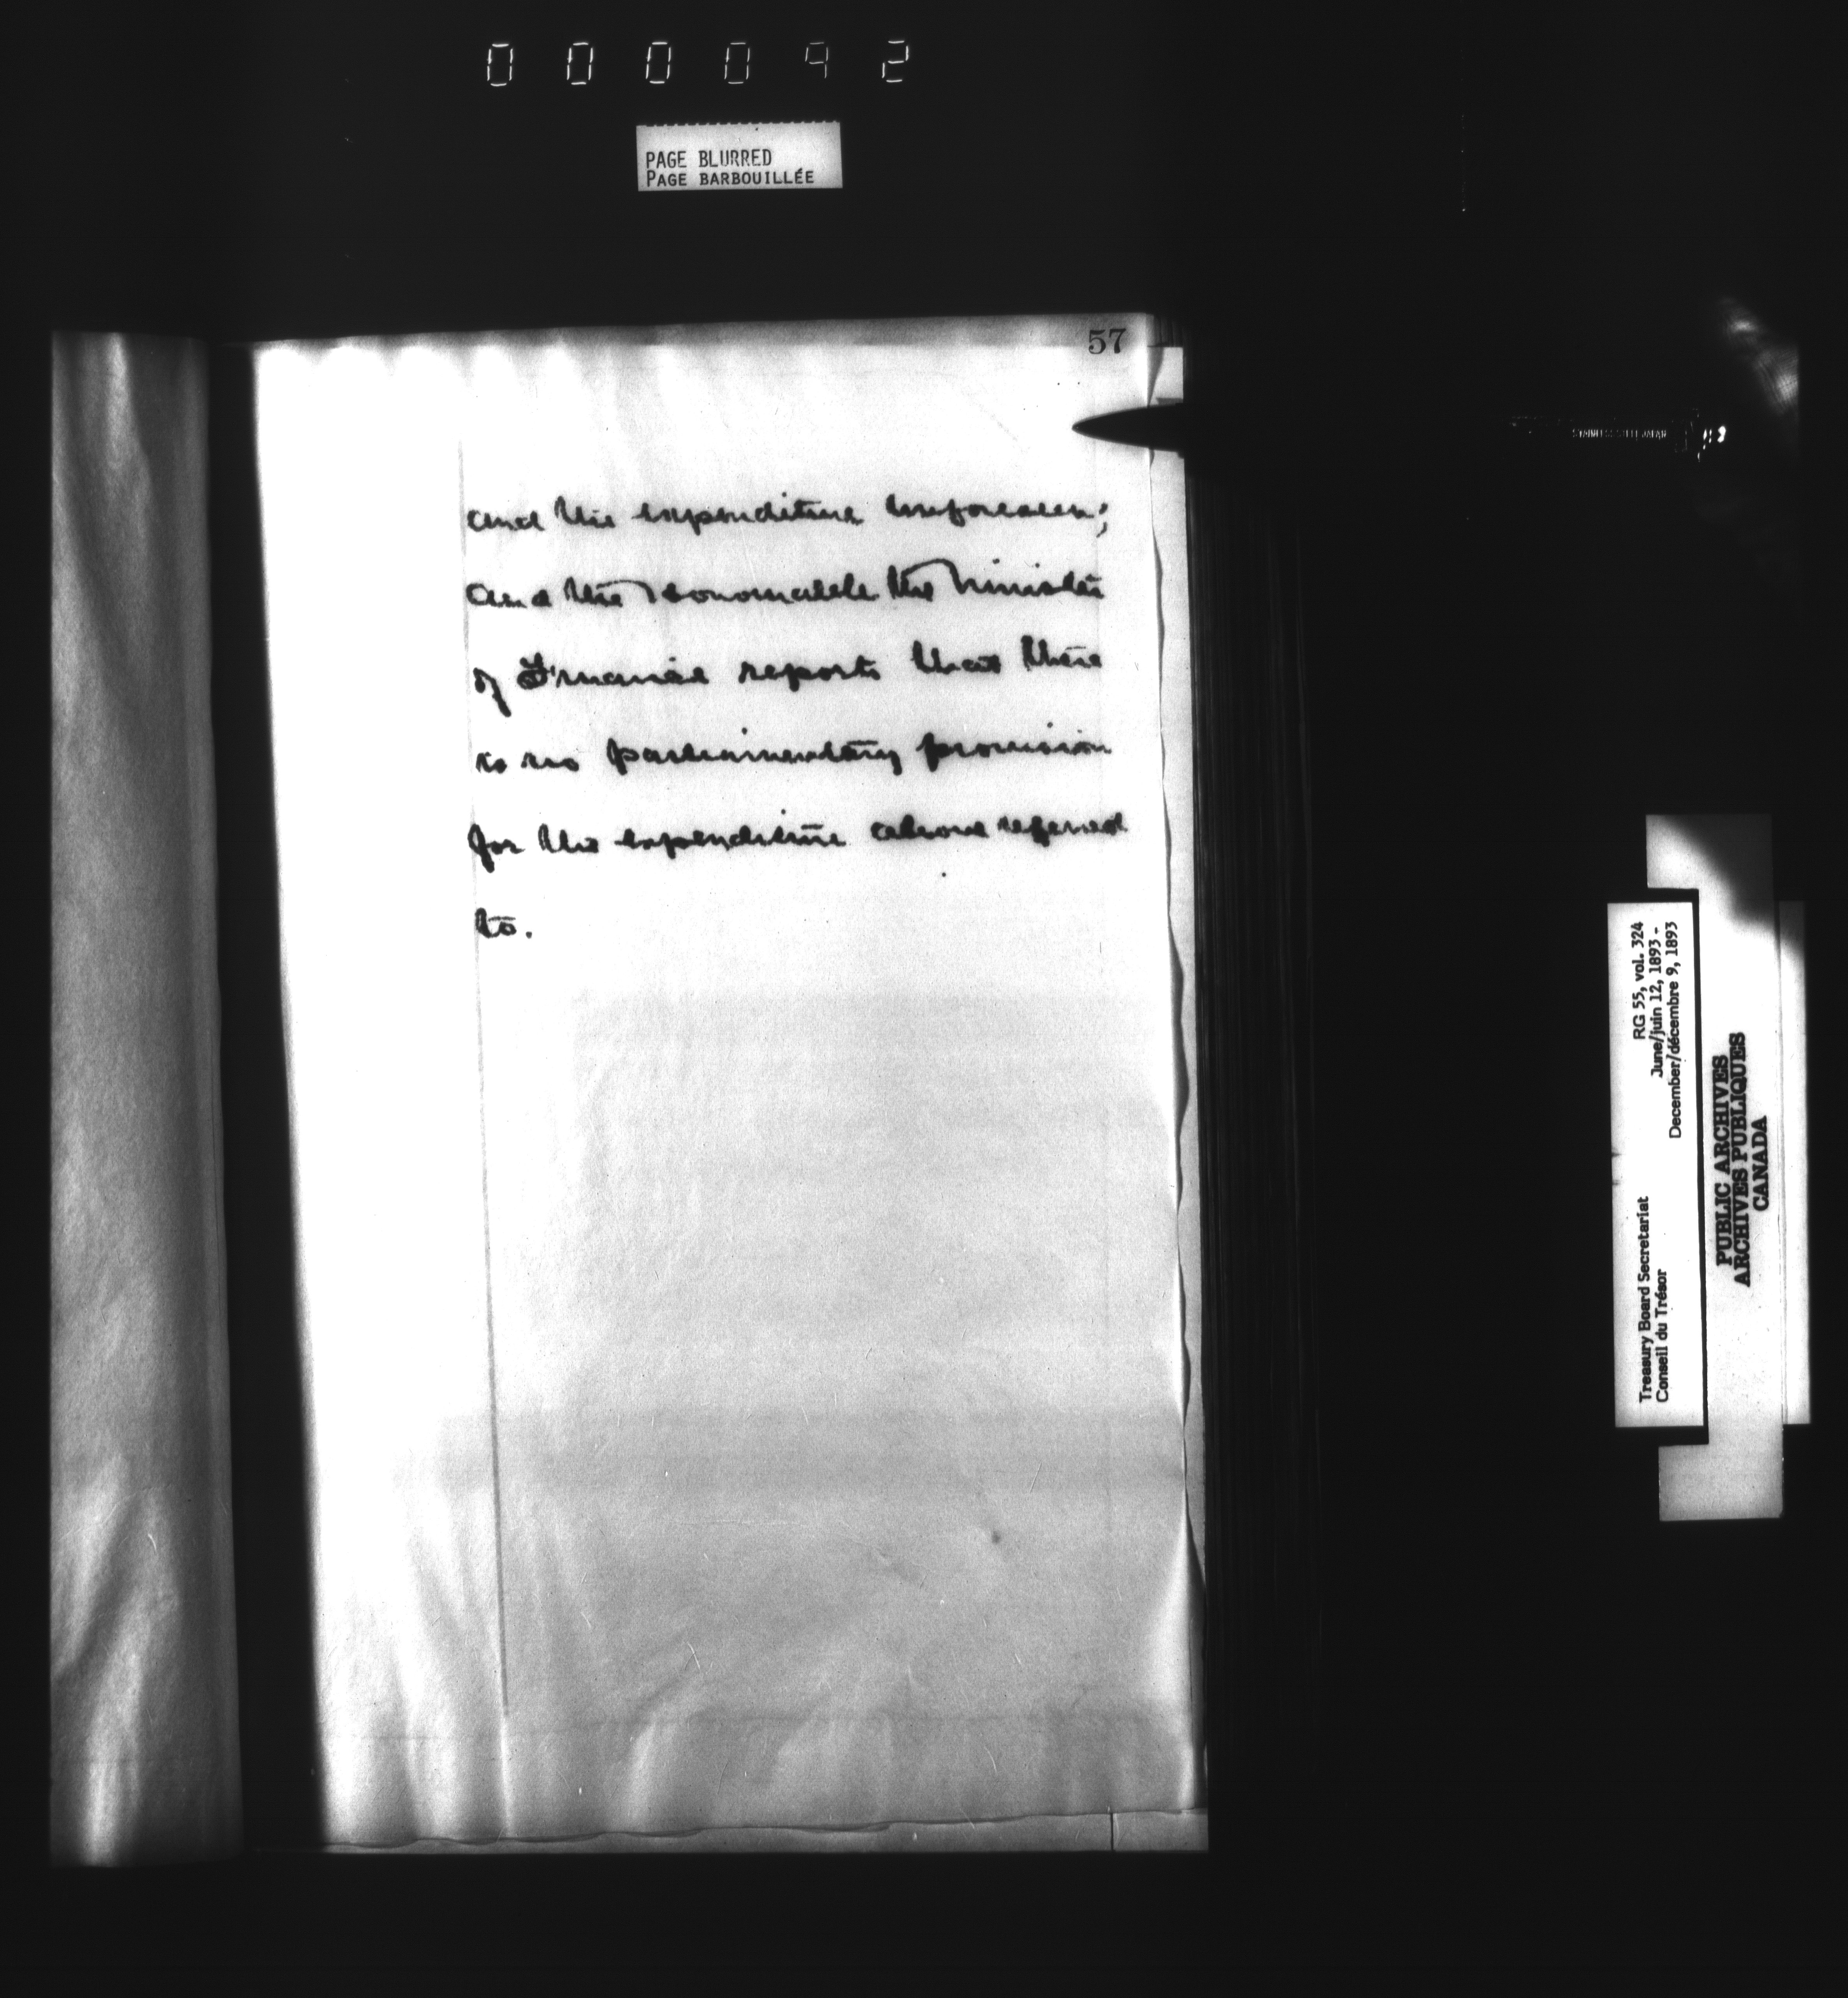 000092
PAGE BLURRED
PAGE BARBOUILLÉE
57
STAINLESS STEEL JAPAN
and the expenditure unforeseen;
and the Honourable the Minister
of Finance reports that there
is no parliamentary provision
for the expenditure above referred
to.
Treasury Board Secretariat RG 55, vol. 324
Conseil du Trésor June/juin 12, 1893 -
December/décembre 9, 1893
PUBLIC ARCHIVES
ARCHIVES PUBLIQUES
CANADA